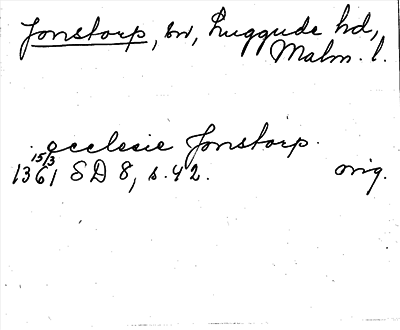 Jonstorp, sn, Luggude hd,
Malm. l.
. ecclesie Jonstorp.
15/3
1361 SD 8, s. 42. orig.